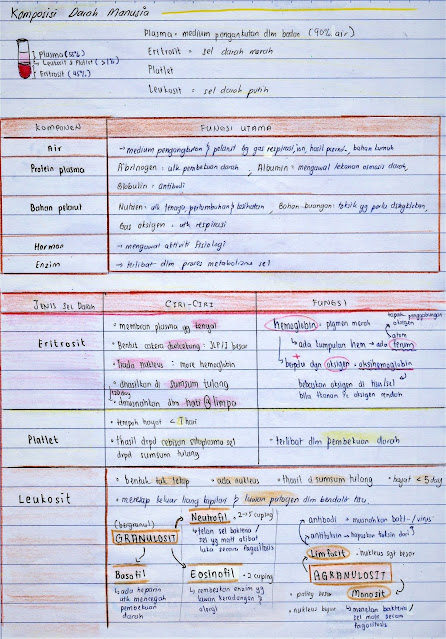 Komposisi Darah Manusia
Plasma = medium pengangkutan dlm badan (90% air)
Eritrosit = sel darah merah
Platlet
Leukosit = sel darah putih
Plasma (55%)
Leukosit & Platlet (<1%)
Eritrosit (45%)
KOMPONEN
FUNGSI UTAMA
Air
→ medium pengangkutan & pelarut bg gas respirasi, ion, hasil
Protein plasma
Fibrinogen = utk pembekuan darah, Albumin = mengawal tekanan osmosis darah,
Globulin = antibodi
Bahan pelarut
Nutrien = utk tenaga, pertumbuhan & kesihatan, Bahan buangan = toksik yg perlu disingkirkan,
Gas oksigen = utk respirasi
Hormon
→ mengawal aktiviti fisiologi
Enzim
→ terlibat dlm proses metabolisme sel
JENIS SEL DARAH
CIRI-CIRI
FUNGSI
Eritrosit
• membran plasma yg kenyal
• Bentuk cakera dwicekung : JLP/I besar
• Tiada nukleus : more hemoglobin
• dihasilkan di sumsum tulang
120 day
• dimusnahkan dlm hati @ limpa
hemoglobin = pigmen merah
tapak penggabungan oksigen
↳ ada kumpulan hem → ada atom ferum
↳ berpadu dgn oksigen = oksihemoglobin
bebaskan oksigen di tisu/sel
bila tkanan Pc oksigen rendah
Platlet
• tempoh hayat < 7 hari
• thasil drpd cebisan sitoplasma sel
drpd sumsum tulang
• terlibat dlm pembekuan darah
Leukosit
• bentuk tak tetap • ada nukleus • thasil d sumsum tulang • hayat < 5 day
• meresap keluar liang kapilari & lawan patogen dlm bendalir tisu.
(bergranul)
GRANULOSIT
Neutrofil • 2-5 cuping
→ telan sel bakteria /
sel yg mati akibat
luka secara fagositosis
Basofil
→ ada heparin
utk mencegah
pembekuan
darah
Eosinofil • 2 cuping
→ rembeskan enzim yg
lawan keradangan &
alergi
antibodi → musnahkan bakt- / virus
antitoksin → hapuskan toksin dari
Limfosit • nukleus sgt besar
AGRANULOSIT
Monosit
• paling besar
• nukleus bujur
→ menelan bakteria /
sel mate secara
fagositosis